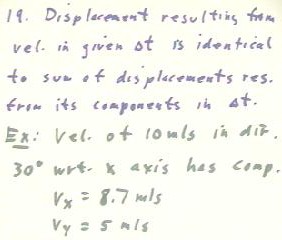 19. Displacement resulting from
vel. in given Δt is identical
to sum of displacements res.
from its components in Δt.
Ex: Vel. of 10 m/s in dir.
30° wrt. x axis has comp.
Vx = 8.7 m/s
Vy = 5 m/s